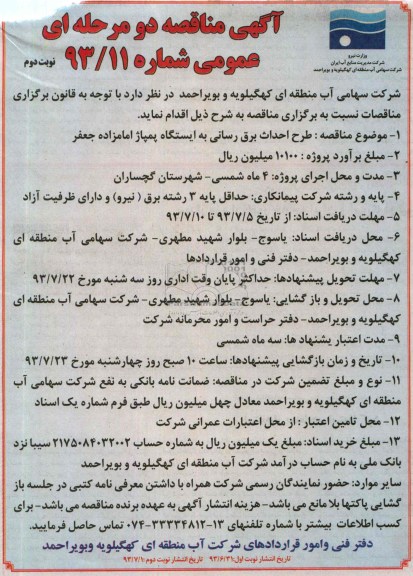 آگهی مناقصه دو مرحله ای
عمومی شماره ۹۳/۱۱
نوبت دوم
وزارت نیرو
شرکت مدیریت منابع آب ایران
شرکت سهامی آب منطقه ای کهگیلویه و بویراحمد
شرکت سهامی آب منطقه ای کهگیلویه و بویراحمد در نظر دارد با توجه به قانون برگزاری
مناقصات نسبت به برگزاری مناقصه به شرح ذیل اقدام نماید.
۱- موضوع مناقصه : طرح احداث برق رسانی به ایستگاه پمپاژ امامزاده جعفر
۲- مبلغ برآورد پروژه : ۱۰۱۰۰ میلیون ریال
۳- مدت و محل اجرای پروژه: ۴ ماه شمسی- شهرستان گچساران
۴- پایه و رشته شرکت پیمانکاری: حداقل پایه ۳ رشته برق ( نیرو) و دارای ظرفیت آزاد
۵- مهلت دریافت اسناد: از تاریخ ۹۳/۷/۵ تا ۹۳/۷/۱۰
۶- محل دریافت اسناد: یاسوج- بلوار شهید مطهری- شرکت سهامی آب منطقه ای
کهگیلویه و بویراحمد- دفتر فنی و امور قراردادها
۷- مهلت تحویل پیشنهادها: حداکثر پایان وقت اداری روز سه شنبه مورخ ۹۳/۷/۲۲
۸- محل تحویل و باز گشایی: یاسوج- بلوار شهید مطهری- شرکت سهامی آب منطقه ای
کهگیلویه و بویراحمد- دفتر حراست و امور محرمانه شرکت
۹- مدت اعتبار پشنهاد ها: سه ماه شمسی
۱۰- تاریخ و زمان بازگشایی پیشنهادها: ساعت ۱۰ صبح روز چهارشنبه مورخ ۹۳/۷/۲۳
۱۱- نوع و مبلغ تضمین شرکت در مناقصه: ضمانت نامه بانکی به نفع شرکت سهامی آب
منطقه ای کهگیلویه و بویراحمد معادل چهل میلیون ریال طبق فرم شماره یک اسناد
۱۲- محل تامین اعتبار : از محل اعتبارات عمرانی شرکت
۱۳- مبلغ خرید اسناد: مبلغ یک میلیون ریال به شماره حساب ۲۱۷۵۰۸۴۰۳۲۰۰۲ سیبا نزد
بانک ملی به نام حساب درآمد شرکت آب منطقه ای کهگیلویه و بویراحمد
سایر موارد: حضور نمایندگان رسمی شرکت همراه با داشتن معرفی نامه کتبی در جلسه باز
گشایی پاکتها بلا مانع می باشد- هزینه انتشار آگهی به عهده برنده مناقصه می باشد- برای
کسب اطلاعات بیشتر با شماره تلفنهای ۱۳-۳۳۳۳۴۸۱۲-۰۷۴ تماس حاصل فرمایید.
دفتر فنی وامور قراردادهای شرکت آب منطقه ای کهگیلویه وبویراحمد
تاریخ انتشار نوبت اول: ۹۳/۶/۳۱ تاریخ انتشار نوبت دوم ۹۳/۷/۱